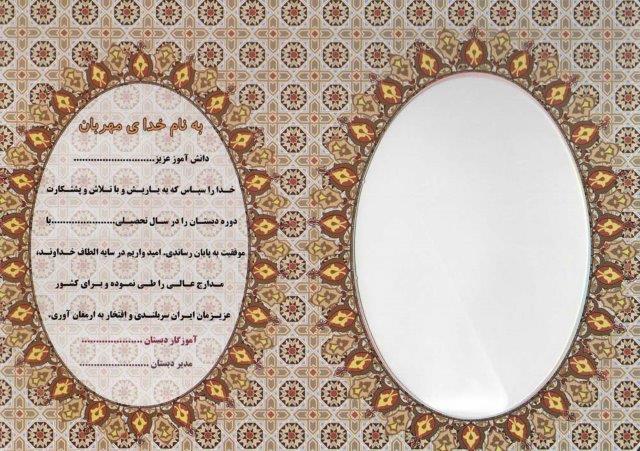 به نام خدا ی مهربان
دانش آموز عزیز...........................
خدا را سپاس که به یاریش و با تلاش و پشتکارت
دوره دبستان را در سال تحصیلی.....................با
موفقیت به پایان رساندی. امید واریم در سایه الطاف خداوند،
مدارج عالی را طی نموده و برای کشور
عزیزمان ایران سربلندی و افتخار به ارمغان آوری.
آموزگار دبستان ....................
مدیر دبستان .......................